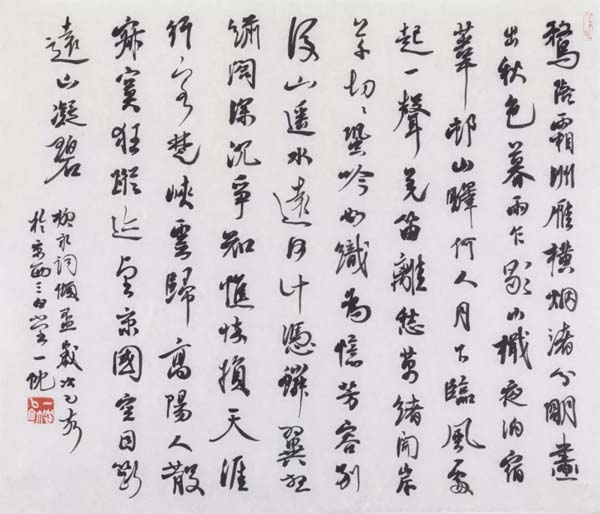 鶩落霜洲雁橫烟渚分明畫
出秋色暮雨乍歇小檝夜泊宿
葦邨山驛何人月下臨風處
起一聲羌笛離愁萬緒聞岸
草切切蛩吟如織為憶芳容別
後山遥水遠何計憑鱗翼想
繡閣深沉爭知憔悴損天涯
行客楚峽雲歸高陽人散
寂寞狂蹤迹望京國空目斷
遠山凝碧
柳永詞傾盃歲次乙未
於京西三白堂一帆